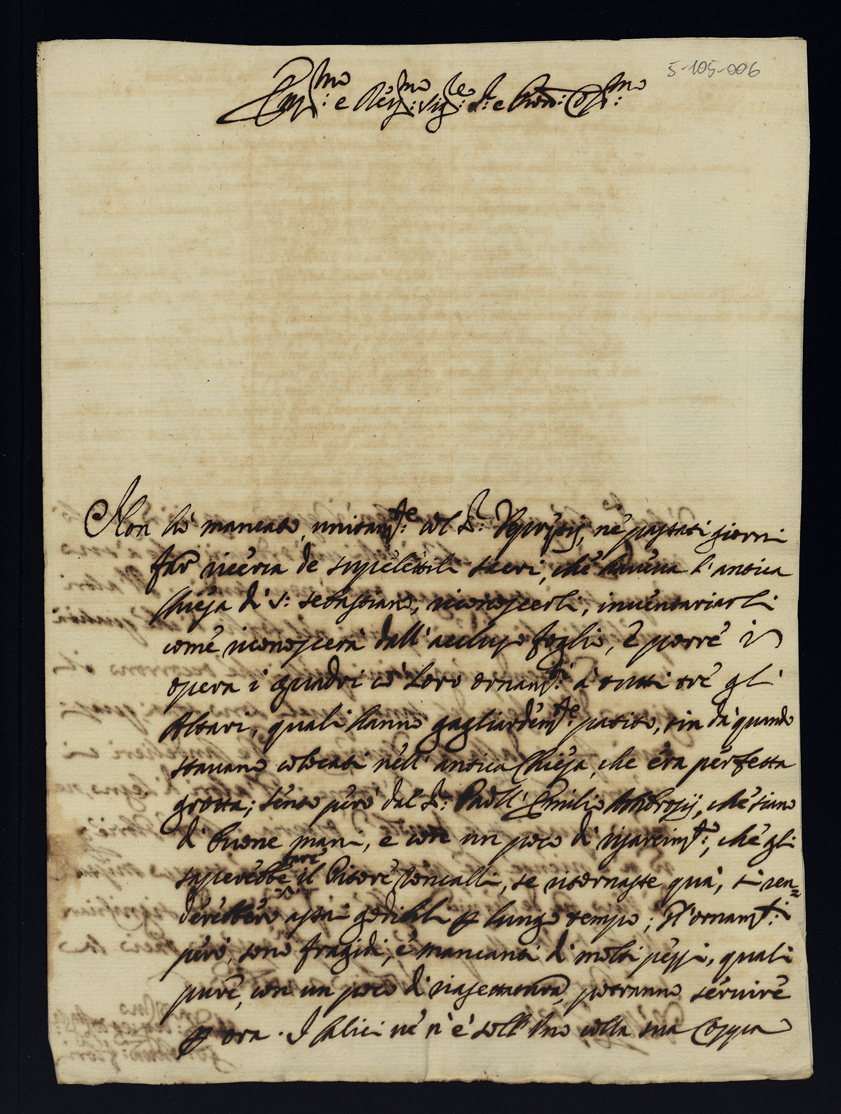 5-105-006
Ill:mo e Rev:mo Sig:re S:r e Pron: Col:mo
Non hò mancato, unitam:te col S:r ne passati giorni
far ricerca de supeletili sacri, che haveva l'antica
Chiesa di S: Sebastiano, riconoscerli, inventariarli
come riconoscerà dall'accluso foglio, e porre in
opera i quadri co' loro ornam:ti à tutti tre gl'
Altari, quali hanno gagliardem:te patito, sin da quando
stavano colocati nell'antica Chiesa, che era perfetta
grotta; sento però dal S: Emilio Ambrosij, che siino
di buone mani, e con un poco di risarcim:to, che gli
saperebbe fare il Pitore Roncalli, se ritornasse quà, si ren=
derebbero assai godibili p lungo tempo; Gl'ornam:ti
però, sono fragidi, e mancanti di molti pezzi, quali
pure, con un poco di racomodatura, potranno servire
p ora. I Calici ve n'è solt uno colla sua Coppa